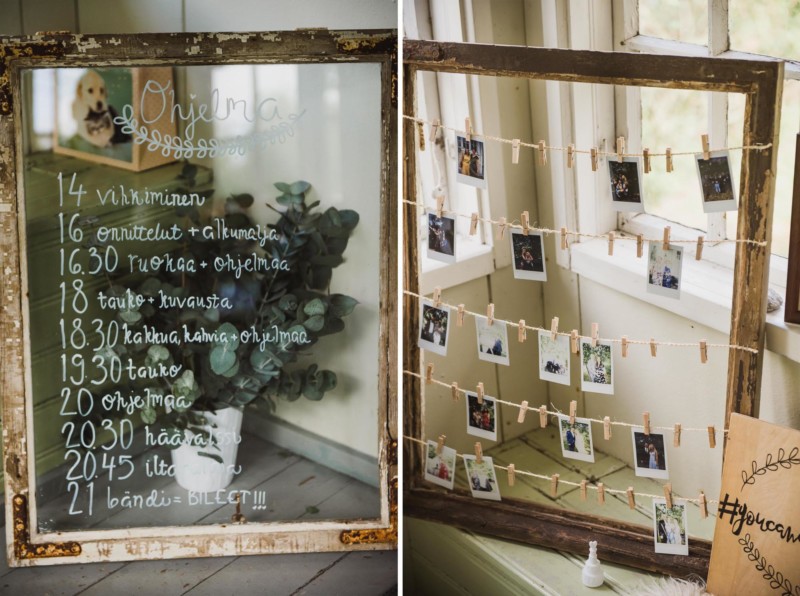 Ohjelma
14 vihkiminen
16 onnittelut + alkumalja
16.30 ruokaa + ohjelmaa
18 tauko + kuvausta
18.30 kakkua, kahvia + ohjelmaa
19.30 tauko
20 ohjelmaa
20.30 häävalssi
20.45 iltapalaa
21 bändi = BILEET!!!
#youcan